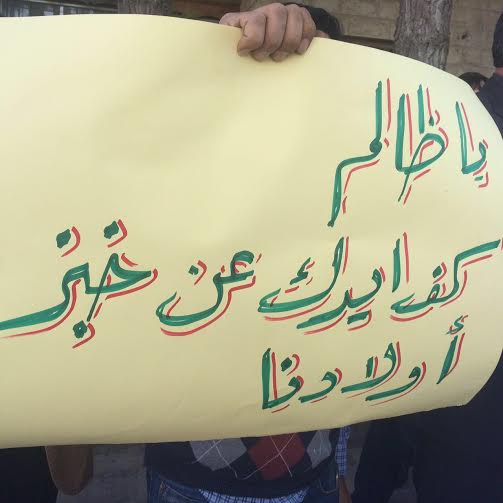 يا ظالم
كف ايدك عن خبز
أولادنا